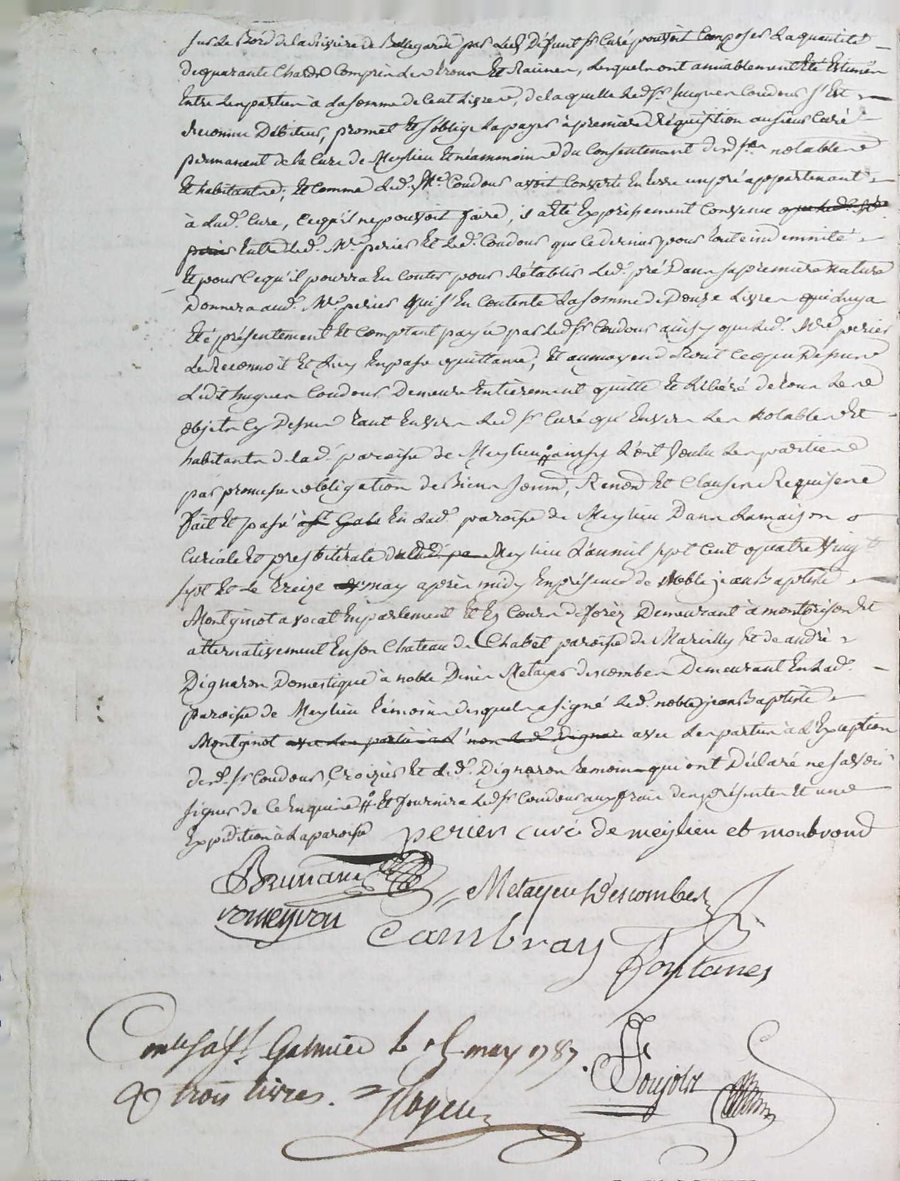 sur le Bord de la Riviere de Bellegarde par led. Defunt sr. Curé pouvoit Composer la quantité
de quarante Chards Compris les trous Et Raines, lesquels ont amiablement Eté Estimés
Entre les parties à la somme de Cent Livres, de la quelle led. sr. hugues Coudour s'Est
Reconnu Débiteur, promet Et s'oblige la payer à premiere Réquisition au sieur Curé
permanent de la Cure de Meylieu Et néammoins du Consentement desd. srs. notables
Et habitants; Et comme led. Coudour avoit Converti En terre un pré appartenant
à lad. Cure, Ce qu'il ne pouvoit faire, il a Eté Expressément Convenu
Entre led. Mre. perier Et led. Coudour que ce dernier pour toute indemnité
Et pour Ce qu'il pourra En Couter pour Rétablir led. pré Dans sa premiere nature
Donnera aud. Mre. perier qui s'En Contente la somme de Douze Livres qui luy a
Eté présentement Et Comptant payée par led. sr. Coudour ainsy que led. Mre. perier
le Reconnoit Et luy En passe quittance; Et au moyen de tout Ce que Dessus
Ledit hugues Coudour Demeure Entierement quitte Et Libéré de tous les
objets Cy Dessus tant Envers led. sr. Curé qu'Envers les Notables Et
habitants de lad. paroisse de Meylieu, ainsy L'ont Voulu les parties
par promesses obligation de Biens soumis, Renonc. Et Clauses Requises
fait Et passé En lad. paroisse de Meylieu Dans la maison
Curiale Et presbiterale Meylieu L'an mil sept Cent quatre Vingt
sept Et le treize may après midy En présence de Noble jean Baptiste
Montginot avocat En parlement Et Es Cours de forez Demeurant à montbrison Et
alternativement En son Chateau de Chabet paroisse de Marcilly Et de andré
Dignaron Domestique à noble Denis Metayer descombes Demeurant En lad.
paroisse de Meylieu témoins desquels a signé led. noble jean Baptiste
Montginot avec les parties à L'Exception
desd. srs. Coudour, Croizier Et led. Dignaron témoin qui ont Déclaré ne savoir
signer de Ce Enquis Et fournira led. sr. Coudour aux frais des présentes Et une
Expédition à la paroisse perier curé de meylieu et montrond
Brunand Metayer Descombes
romeyron Cambray
fontanes
Con.lé à St. Galmier le 15 may 1787.
trois livres.